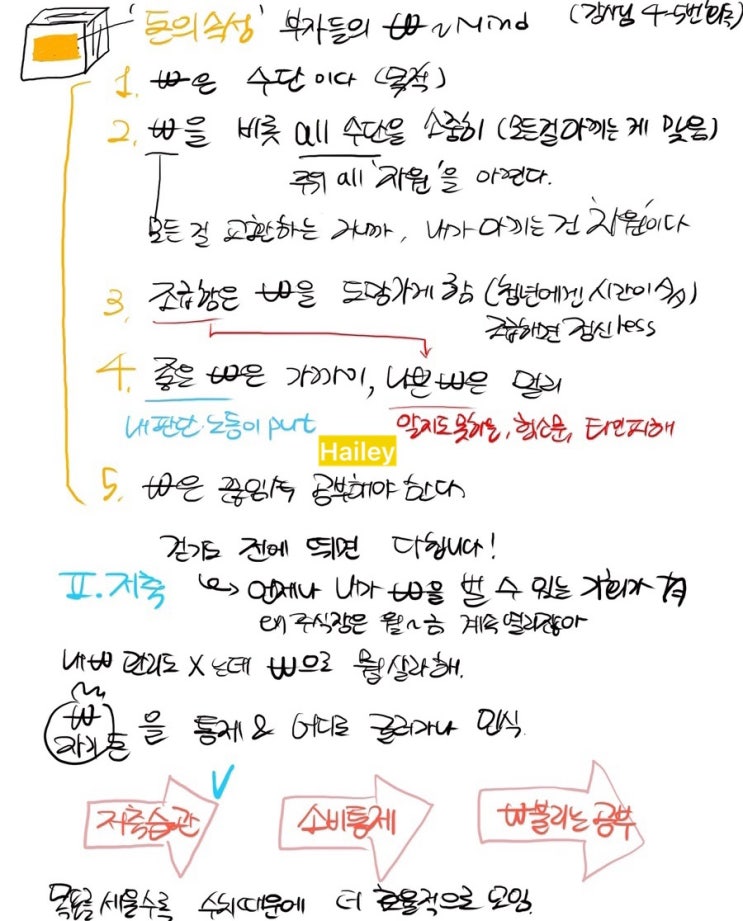 '돈의 속성' 부자들의 ₩ ~ Mind (강사님 4-5번 회독)
1. ₩은 수단이다 (목적)
2. ₩을 비롯 all 수단을 소중히 (모든걸 아끼는 게 맞음)
주위 all '자원'을 아낀다.
모든 걸 교환하는 거니까, 내가 아끼는 건 '자원'이다
3. 조급함은 ₩을 도망가게 함 (청년에겐 시간이 속성)
조급해면 정신 less
4. 좋은 ₩은 가까이, 나쁜 ₩은 멀리
내 판단·노동이 put
알지도 못하는, 헛소문, 타인피해
Hailey
5. ₩은 끊임X 공부해야 한다
걷기도 전에 뛰면 다칩니다!
II. 저축 ↳ 언제나 니가 ₩을 벌 수 있는 기회가 有
ex 주식장은 월~금 계속 열리잖아
내 ₩ 관리도 X는데 ₩으로 뭘 살라해.
₩
자기 돈을 통제 & 어디로 굴러가나 인식.
저축습관 소비통제 ₩불리는 공부
목표를 세울수록 수치때문에 더 효율적으로 모임.